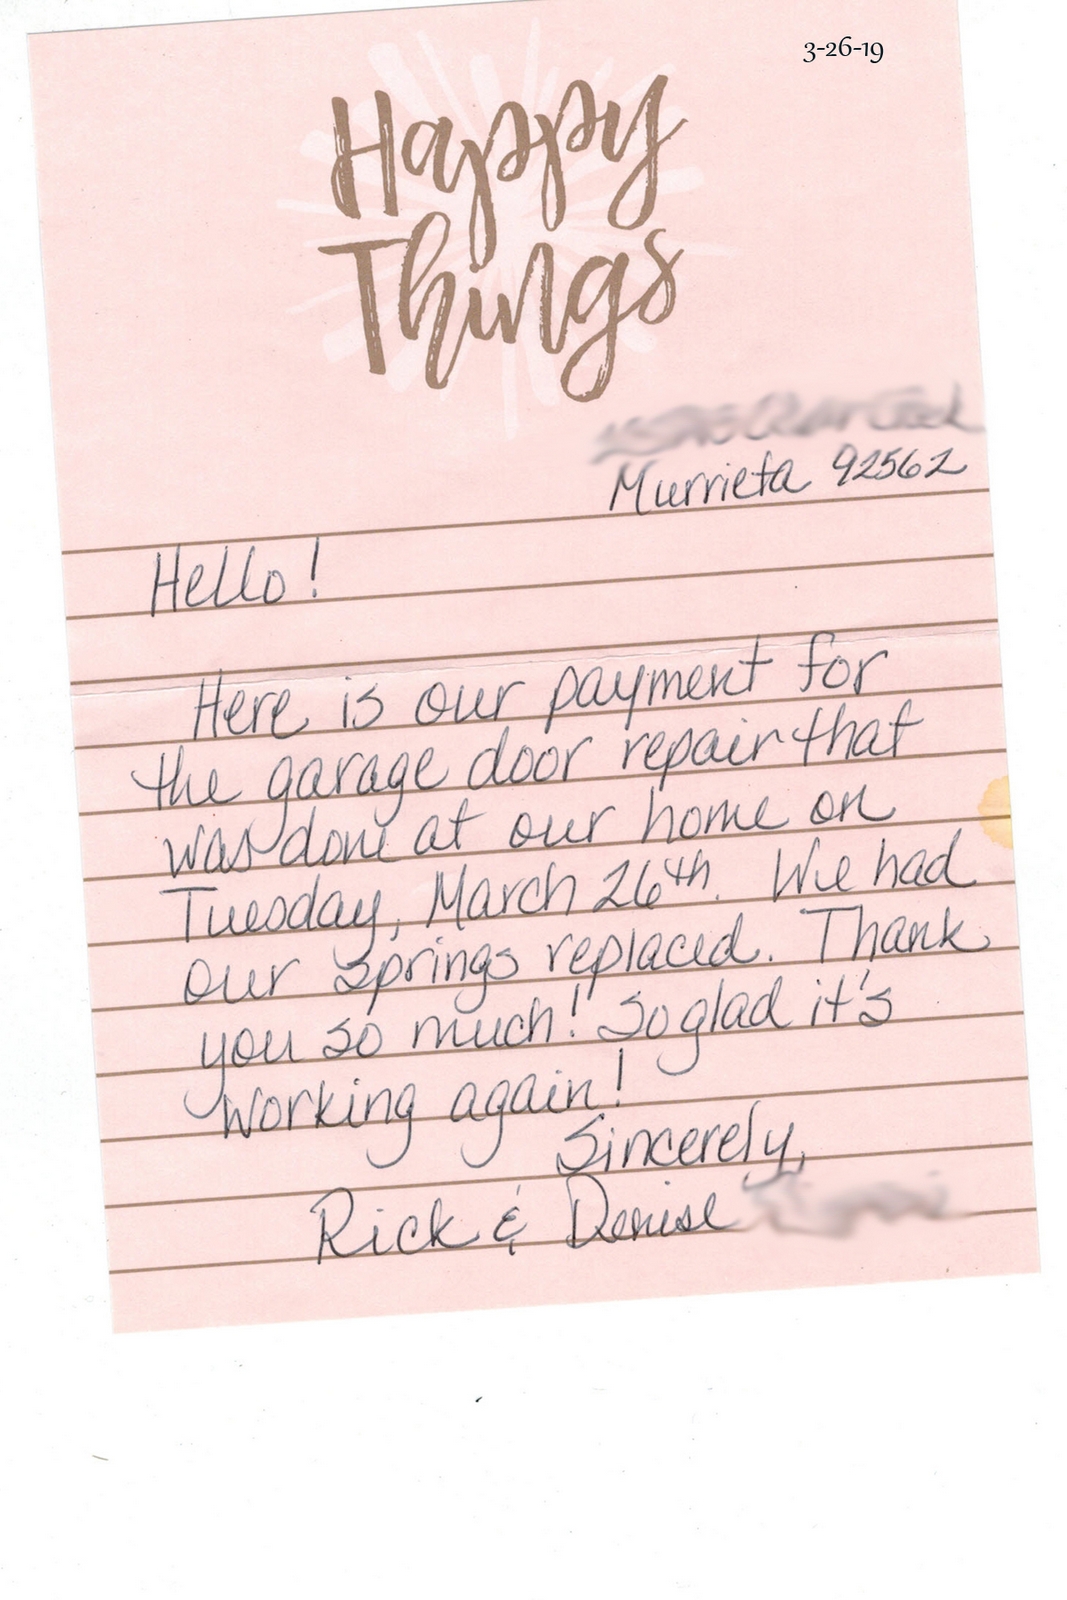 3-26-19
Happy
Things
Murrieta 92562
Hello!
Here is our payment for
the garage door repair that
was done at our home on
Tuesday, March 26th. We had
our springs replaced. Thank
you so much! So glad it's
working again!
Sincerely,
Rick & Denise